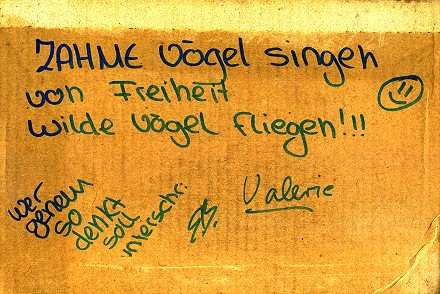 ZAHME Vögel singen
von Freiheit
wilde Vögel fliegen!!!
wer
genem
so
denkt
soll
unterschr.
Valerie